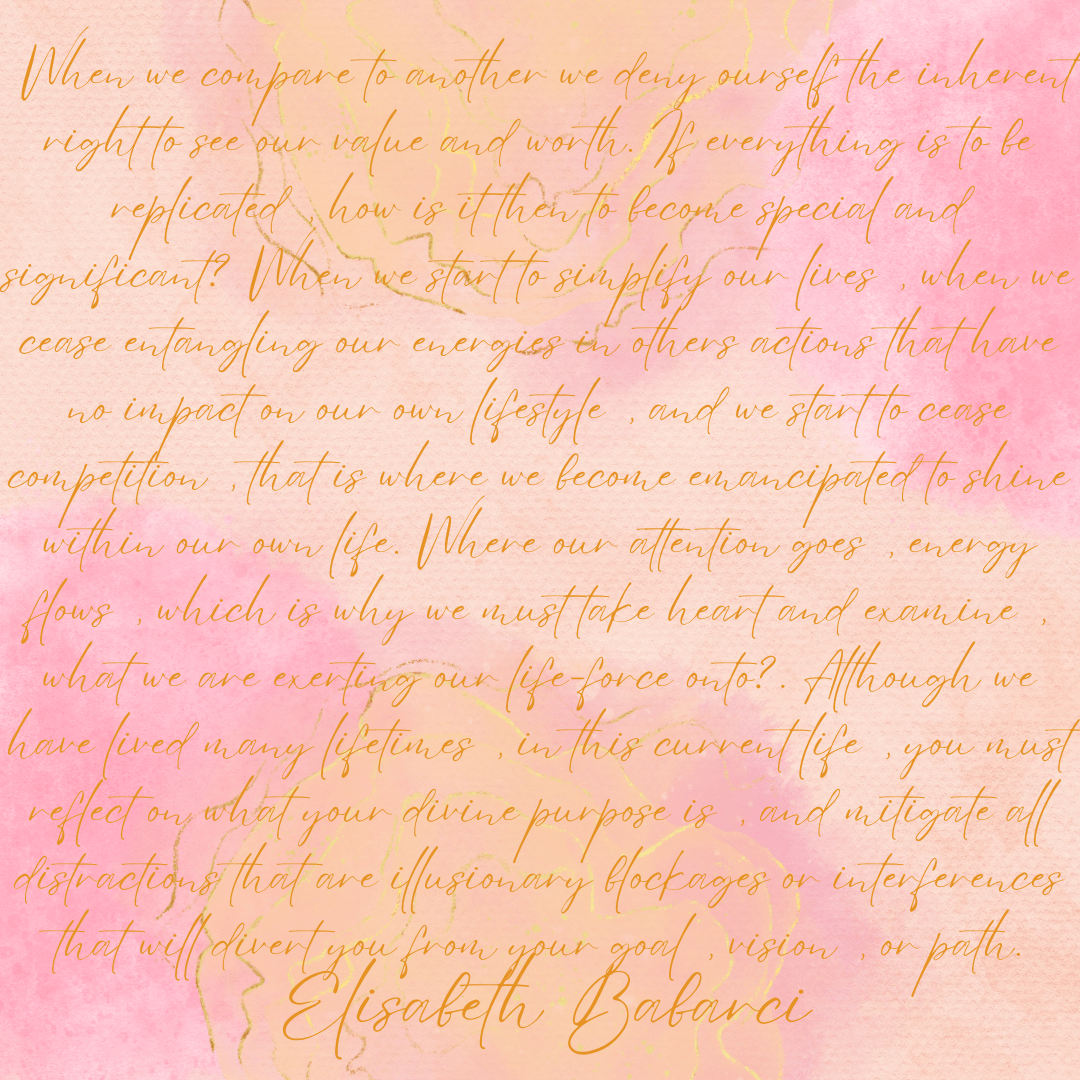 When we compare to another we deny ourself the inherent
right to see our value and worth. If everything is to be
replicated , how is it then to become special and
significant? When we start to simplify our lives , when we
cease entangling our energies in others actions that have
no impact on our own lifestyle , and we start to cease
competition , that is where we become emancipated to shine
within our own life. Where our attention goes , energy
flows , which is why we must take heart and examine ,
what we are exerting our life-force onto? . Although we
have lived many lifetimes , in this current life , you must
reflect on what your divine purpose is , and mitigate all
distractions that are illusionary blockages or interferences
that will divert you from your goal , vision , or path.
Elisabeth Babarci